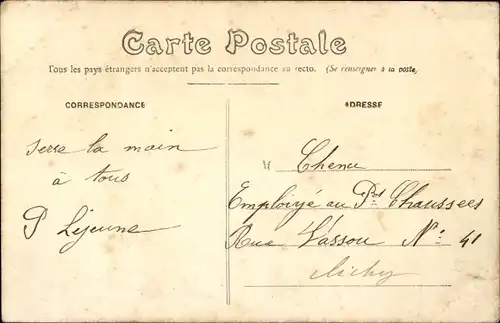 Carte Postale
Tous les pays étrangers n'acceptent pas la correspondance au recto. (Se renseigner à la poste.
CORRESPONDANCE
serre la main
à tous
P Lejeune
ADRESSE
M Chenu
Employé au Pts Chaussees
Rue Vassou No: 41
clichy